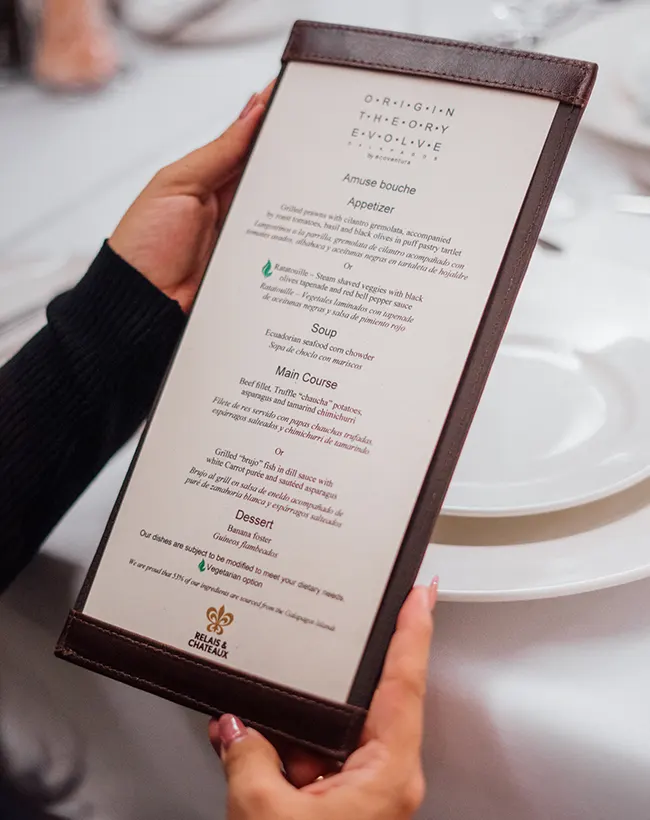 O•R•I•G•I•N
T•H•E•O•R•Y
E•V•O•L•V•E
G A L A P A G O S
by ecoventura
Amuse bouche
Appetizer
Grilled prawns with cilantro gremolata, accompanied
by roast tomatoes, basil and black olives in puff pastry tartlet
Langostinos a la parrilla, gremolata de cilantro acompañado con
tomates asados, albahaca y aceitunas negras en tartaleta de hojaldre
Or
Ratatouille – Steam shaved veggies with black
olives tapenade and red bell pepper sauce
Ratatouille – Vegetales laminados con tapenade
de aceitunas negras y salsa de pimiento rojo
Soup
Ecuadorian seafood corn chowder
Sopa de choclo con mariscos
Main Course
Beef fillet, Truffle “chaucha” potatoes,
asparagus and tamarind chimichurri
Filete de res servido con papas chauchas trufadas,
espárragos salteados y chimichurri de tamarindo
Or
Grilled “brujo” fish in dill sauce with
white Carrot purée and sautéed asparagus
Brujo al grill en salsa de eneldo acompañado de
puré de zanahoria blanca y espárragos salteados
Dessert
Banana foster
Guineos flambeados
Our dishes are subject to be modified to meet your dietary needs.
Vegetarian option
We are proud that 53% of our ingredients are sourced from the Galapagos Islands
RELAIS &
CHATEAUX